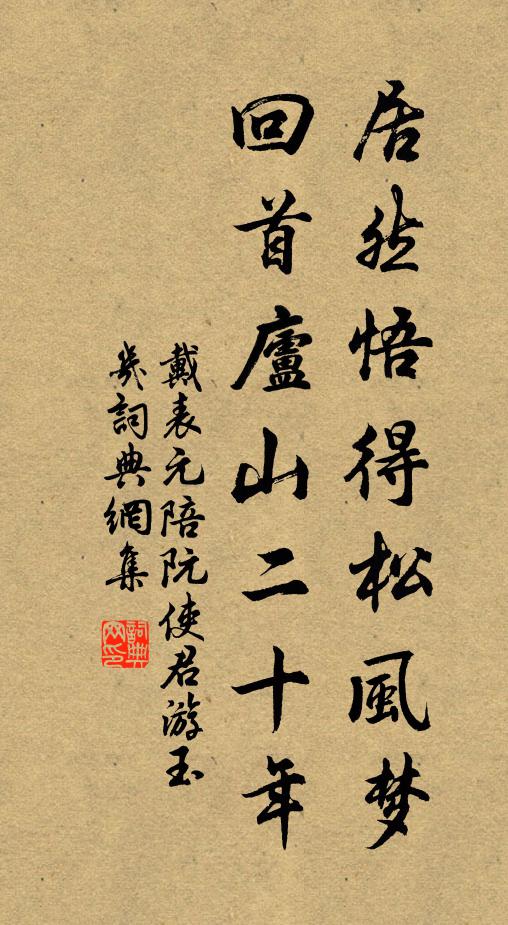 居然悟得松風梦
回首廬山二十年
戴表元陪阮使君游玉
几詞典網集
詞典网印